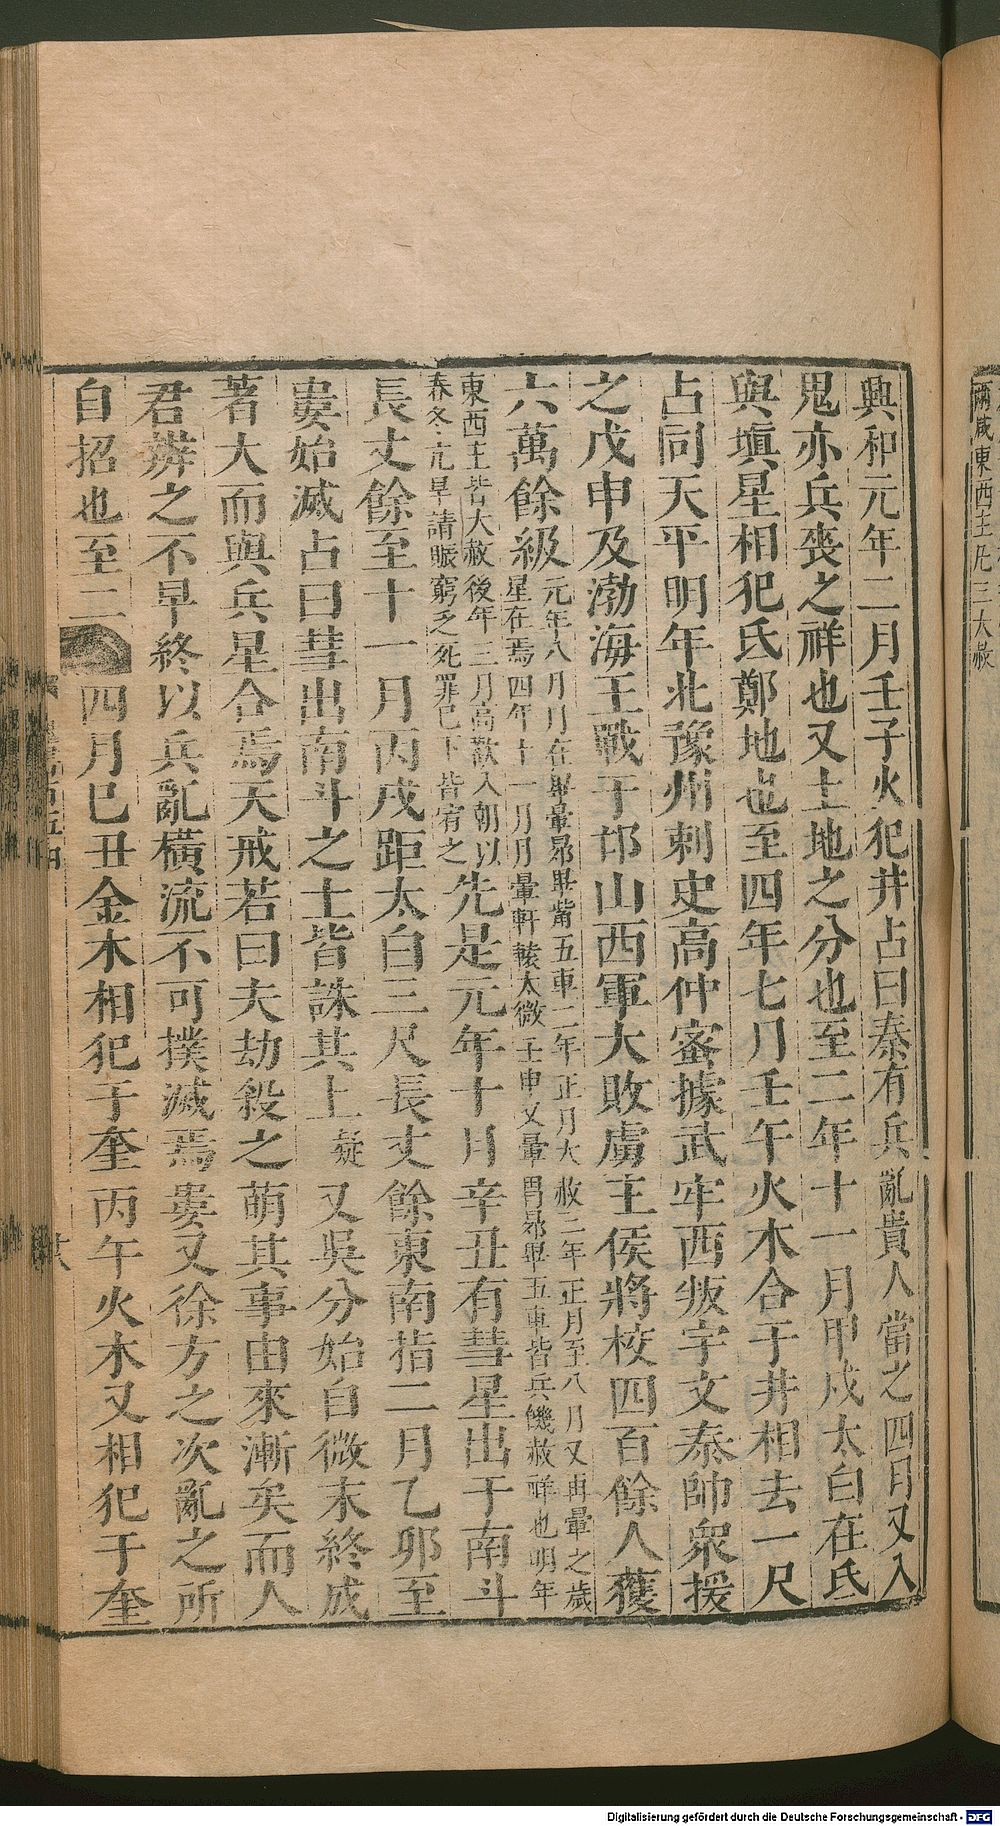 爾咸東西主凡三大赦
興和元年二月壬子火犯井占曰秦有兵亂貴人當之四月又入
鬼亦兵喪之祥也又土地之分也至二年十一月甲戌太白在氐
與塡星相犯氐鄭地也至四年七月壬午火木合于井相去一尺
占同天平明年北豫州刺史高仲密據武牢西叛宇文泰帥衆援
之戊申及渤海王戰于邙山西軍大敗虜主侯將校四百餘人獲
六萬餘級元年八月月在畢暈昴畢觜五車二年正月大赦三年正月至八月又再暈之歲
星在焉四年十一月月暈軒轅太微壬申又暈胃昴畢五車皆兵饑赦祥也明年
東西主皆大赦後年三月高歡入朝以
春冬亢旱請賑窮乏死罪已下皆宥之先是元年十月辛丑有彗星出于南斗
長丈餘至十一月丙戌距太白三尺長丈餘東南指二月乙卯至
婁始滅占曰彗出南斗之土皆誅其上疑又吳分始自微末終成
著大而與兵星合焉天戒若曰夫劫殺之萌其事由來漸矣而人
君辨之不早終以兵亂橫流不可撲滅焉婁又徐方之次亂之所
自招也至二
四月已丑金木相犯于奎丙午火木又相犯于奎
Digitalisierung gefördert durch die Deutsche Forschungsgemeinschaft - DFG